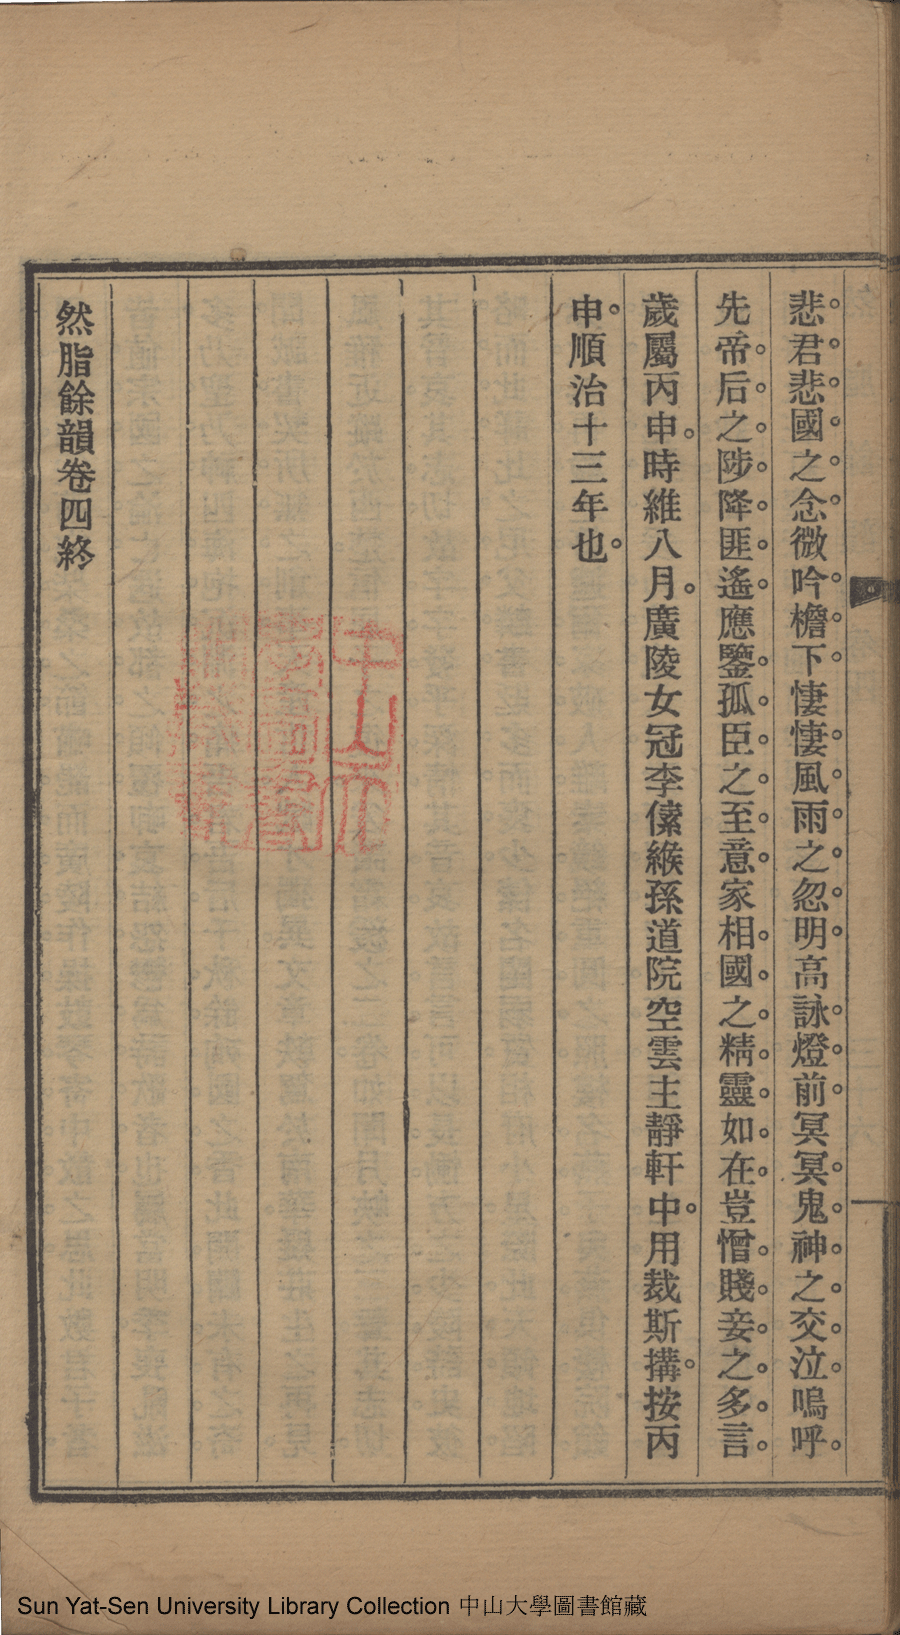 悲君悲國之念微吟檐下悽悽風雨之忽明高詠燈前冥冥鬼神之交泣嗚呼
先帝后之陟降匪遙應鑒孤臣之至意家相國之精靈如在豈憎賤妾之多言
歲屬丙申時維八月廣陵女冠李傃緱孫道院空雲主靜軒中用裁斯搆按丙
申順治十三年也
然脂餘韻卷四終
Sun Yat-Sen University Library Collection 中山大學圖書館藏